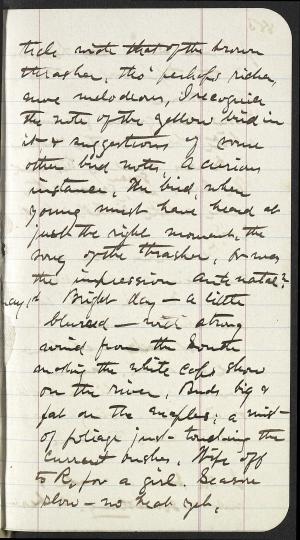 tle note that of the brown
thrasher, tho' perhaps richer,
more melodious, I recognize
the note of the yellow bird in
it & suggestions of some
other bird notes. A curious
instance, the bird, when
young must have heard at
just the right moment, the
song of the thrasher, or was
the impression ante natal?
May, Bright day — a little
blurred — with strong
wind from the South
making the white caps show
on the river, Buds big &
fat on the maples; a mist
of foliage just touching the
currant bushes, Wife off
to P. for a girl. Season
slow — no heat yet,